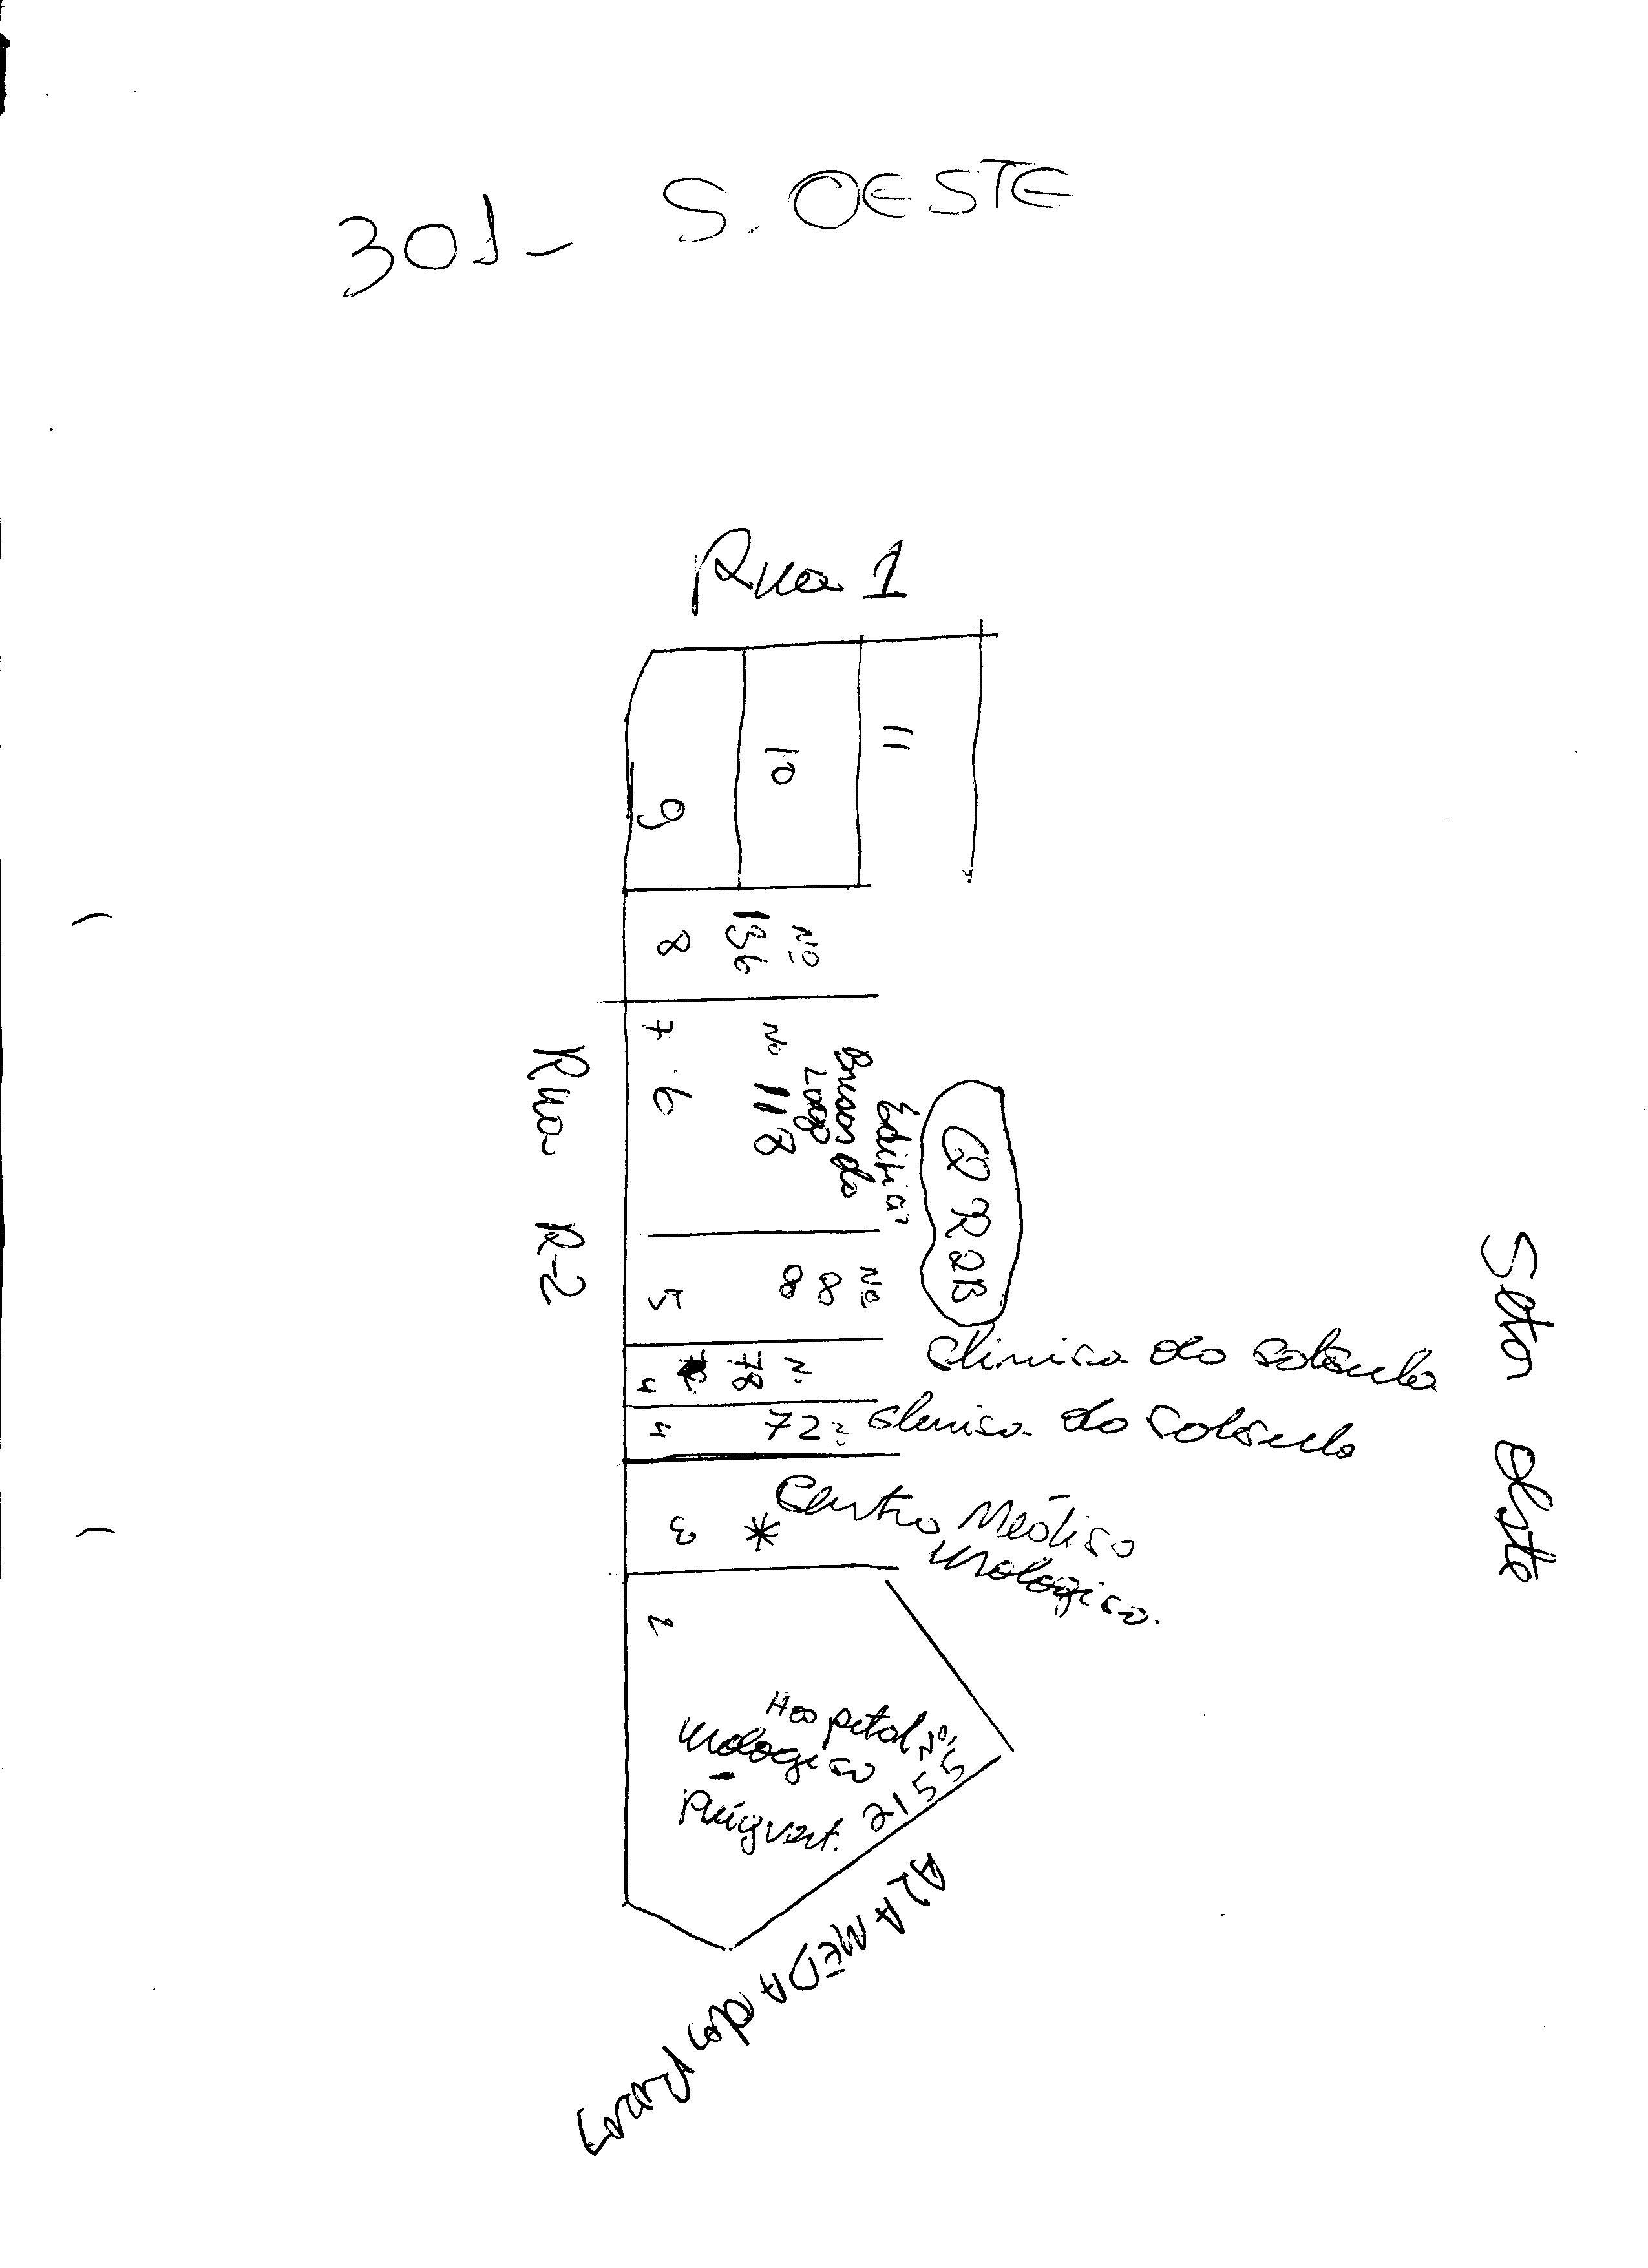 301- S. OESTE
Rua 1
11
10
9
8
Nº
136
7.6
No 118
Edifício
Brisas do
Lago
Q R2B
Rua R-2
5
Nº
88
4
Nº
78
Clinica do
4
72
Clinica do
3 *
Centro Médico
Urologico.
2
Hospital
Urologico
-
Puigvert.
Nº
2155
ALAMEDA das Rosas
Setor Oeste